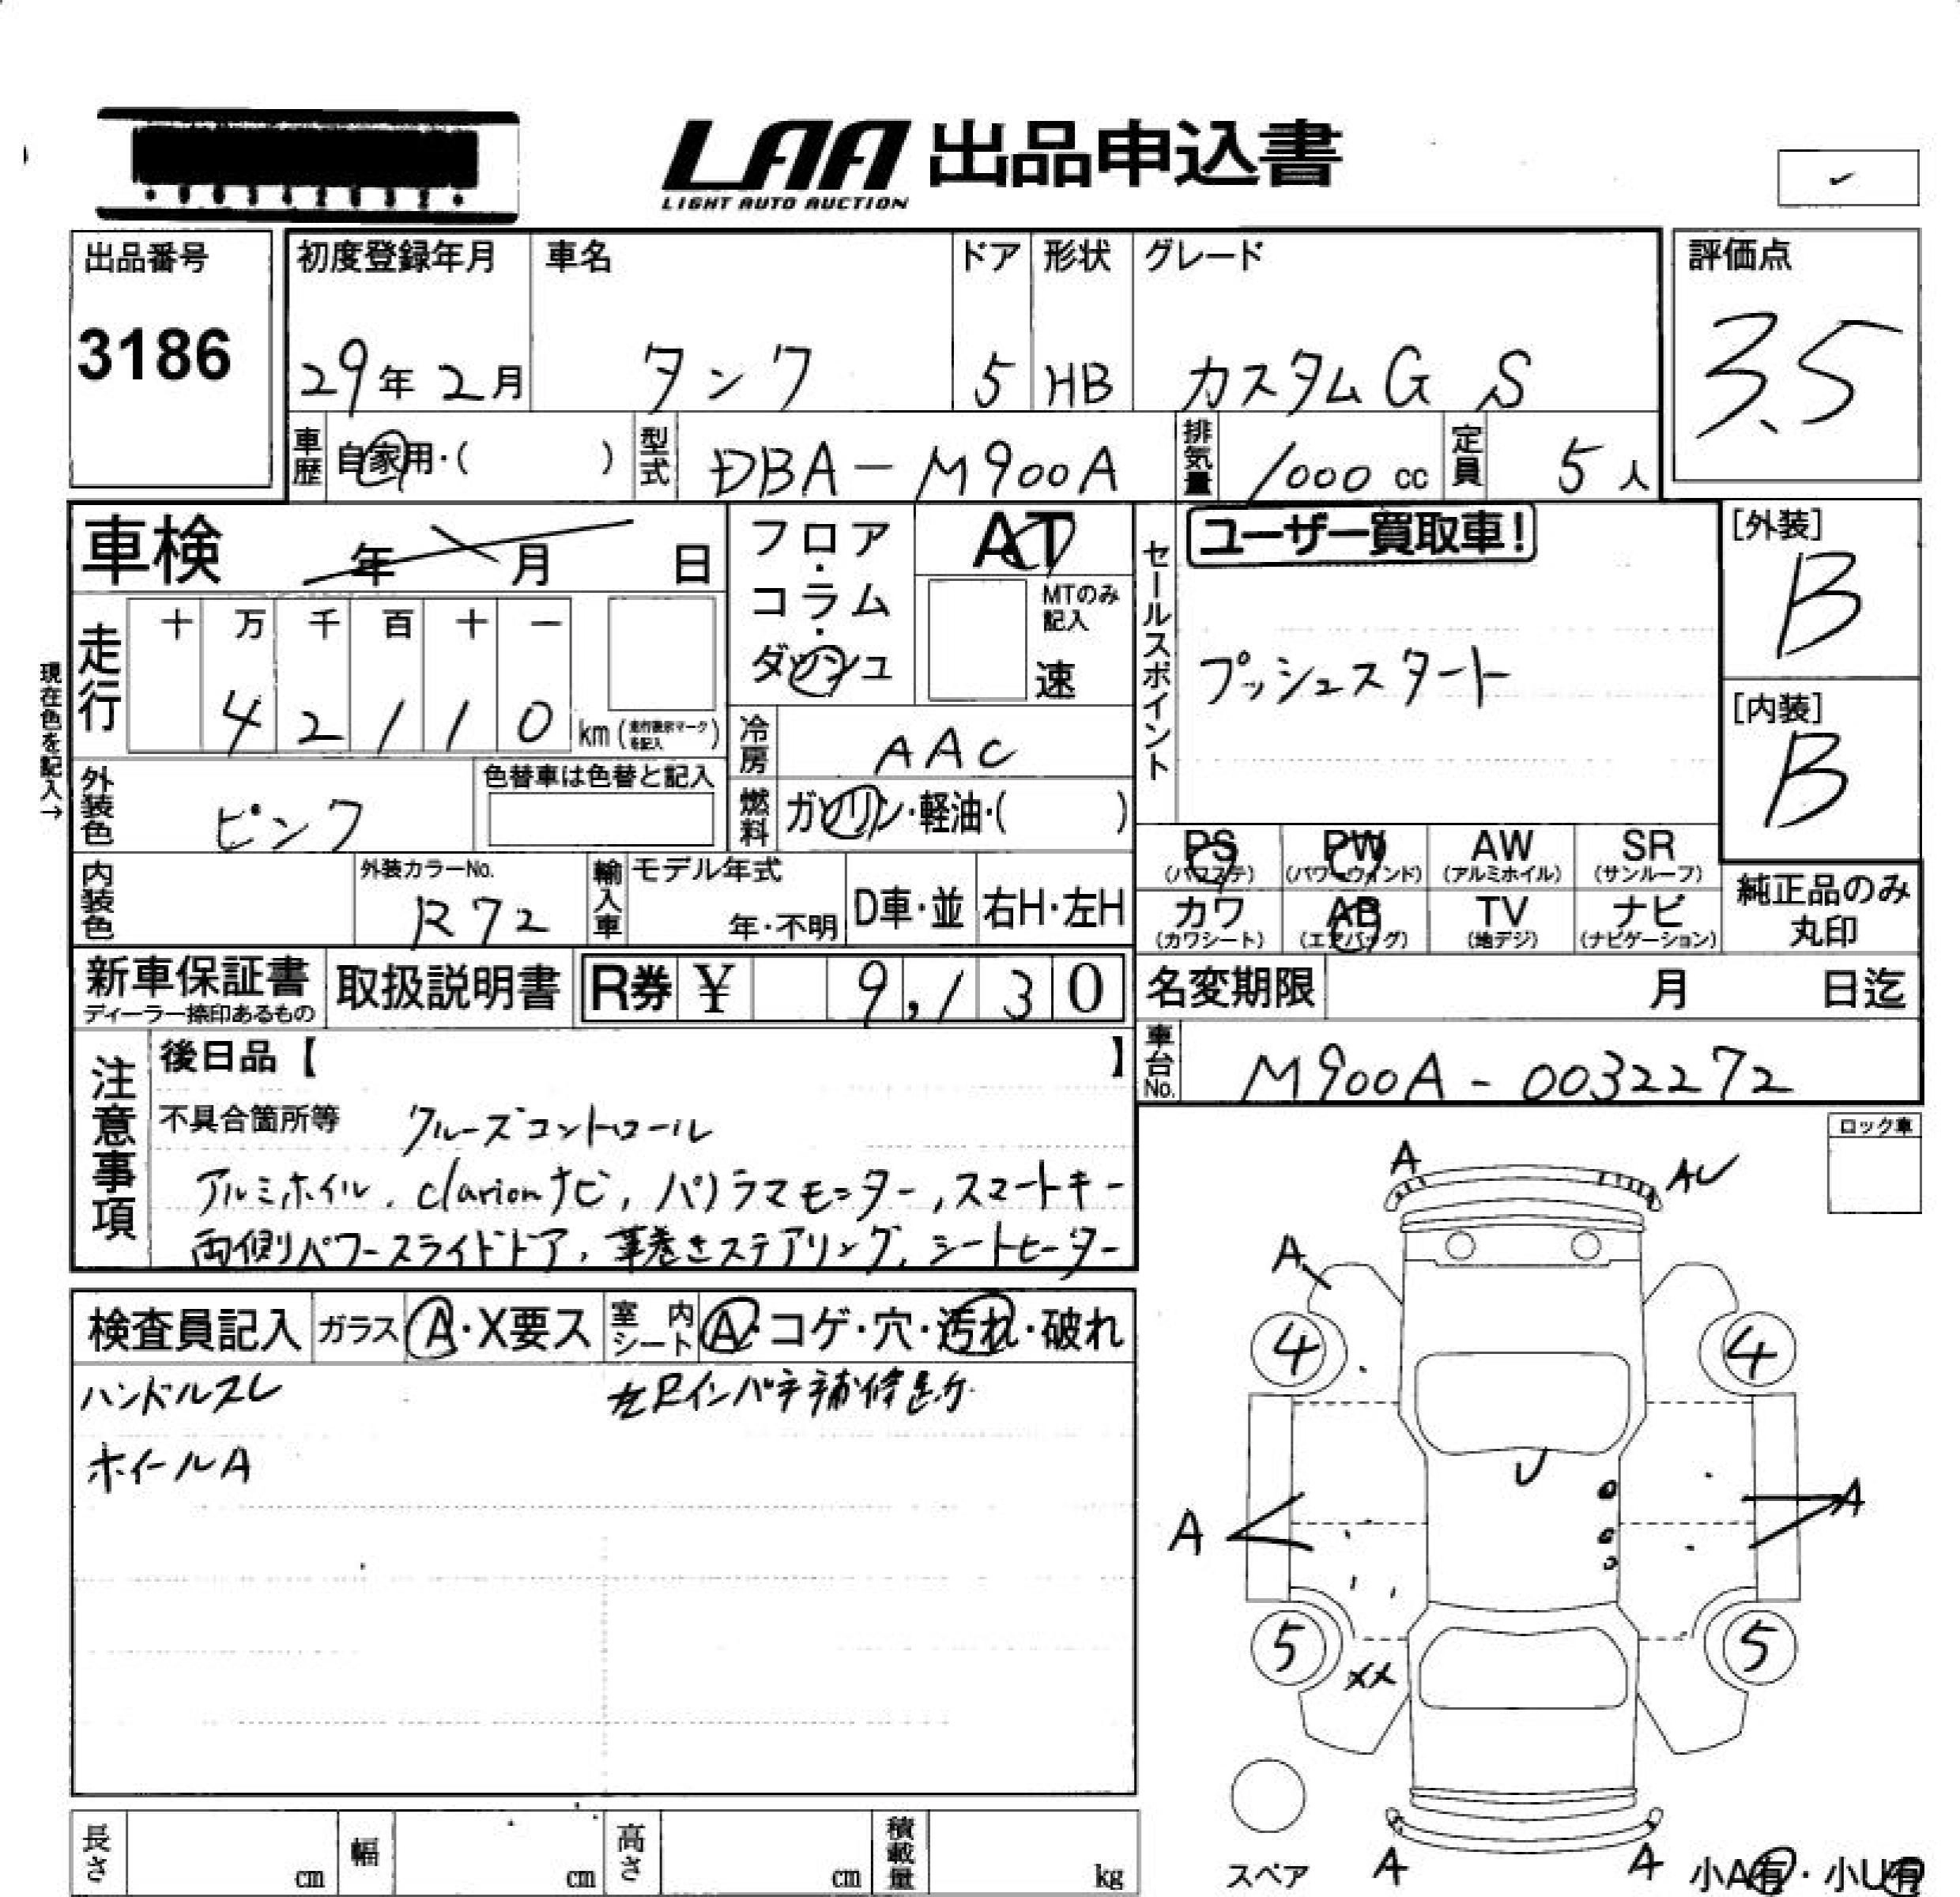 LAA 出品申込書
LIGHT AUTO AUCTION
出品番号
3186
初度登録年月
29年 2月
車名
タンク
ドア
5
形状
HB
グレード
カスタムG S
評価点
3.5
車歴
自家用・( )
型式
DBA-M900A
排気量
1000 cc
定員
5人
車検
年 月 日
フロア・コラム・ダッシュ
AT
MTのみ記入
速
セールスポイント
ユーザー買取車!
プッシュスタート
[外装]
B
[内装]
B
現在色を記入→
走行
十 万 千 百 十 一
4 2 1 1 0 km
冷房
AAC
燃料
ガソリン・軽油・( )
外装色
ピンク
色替車は色替と記入
内装色
外装カラーNo.
R72
輸入車
モデル年式
年・不明
D車・並
右H・左H
PS
(パワステ)
PW
(パワーウインド)
AW
(アルミホイル)
SR
(サンルーフ)
カワ
(カワシート)
AB
(エアバッグ)
TV
(地デジ)
ナビ
(ナビゲーション)
純正品のみ
丸印
新車保証書
ディーラー捺印あるもの
取扱説明書
R券 ¥ 9,130
名変期限 月 日迄
車台No.
M900A-0032272
注意事項
後日品【 】
不具合箇所等 クルーズコントロール
アルミホイル, clarionナビ, パノラマモニター, スマートキー
両側パワースライドドア, 革巻きステアリング, シートヒーター
ロック車
検査員記入
ガラス A・X要ス
室内シート A・コゲ・穴・汚れ・破れ
ハンドルスレ
左Rインパネ補修
ホイールA
A
AU
A
4
4
U
A
A
5
5
XX
スペア
A
A
小A有・小U有
長さ cm
幅 cm
高さ cm
積載量 kg